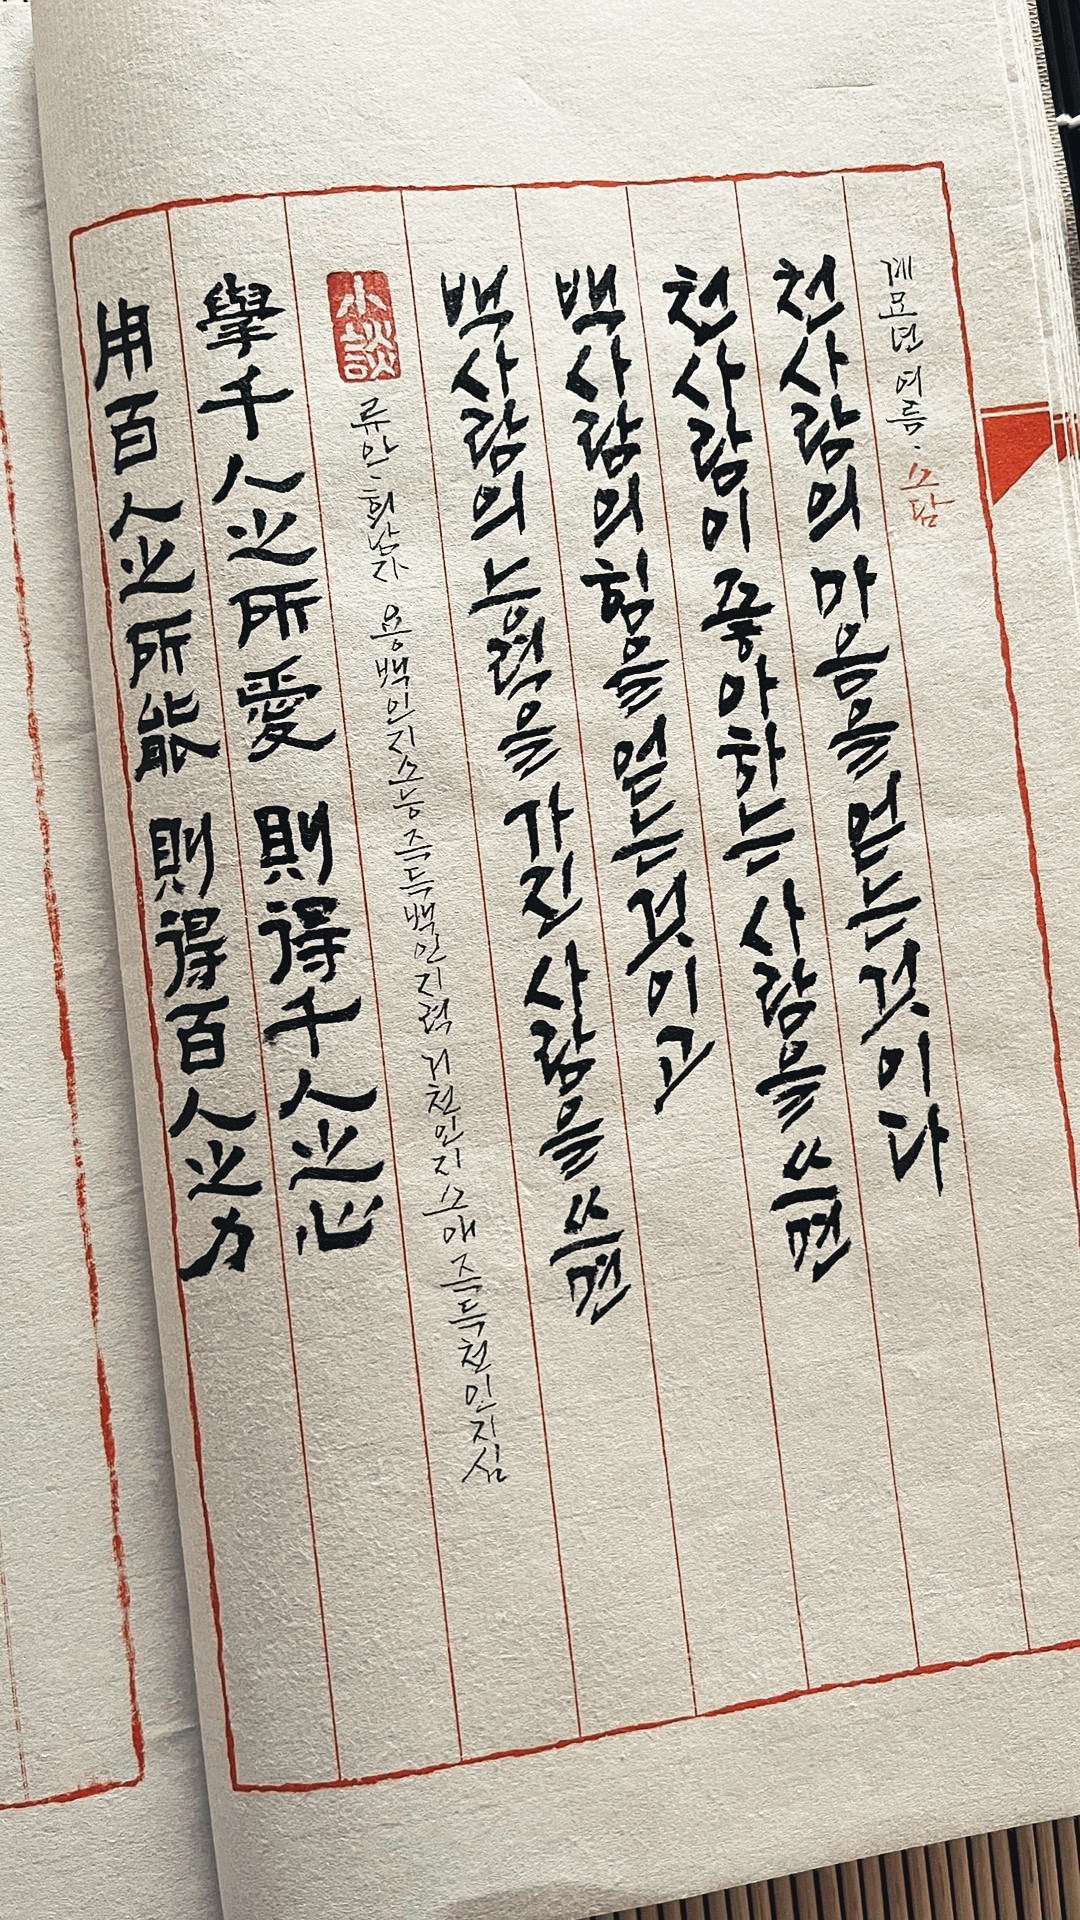 用百人之所能 則得百人之力
擧千人之所愛 則得千人之心
小談
류안·회남자 용백인지소능 즉득백인지력 거천인지소애 즉득천인지심
백사람의 능력을 가진 사람을 쓰면
백사람의 힘을 얻는것이고
천사람이 좋아하는 사람을 쓰면
천사람의 마음을 얻는것이다
계묘년 여름·소담